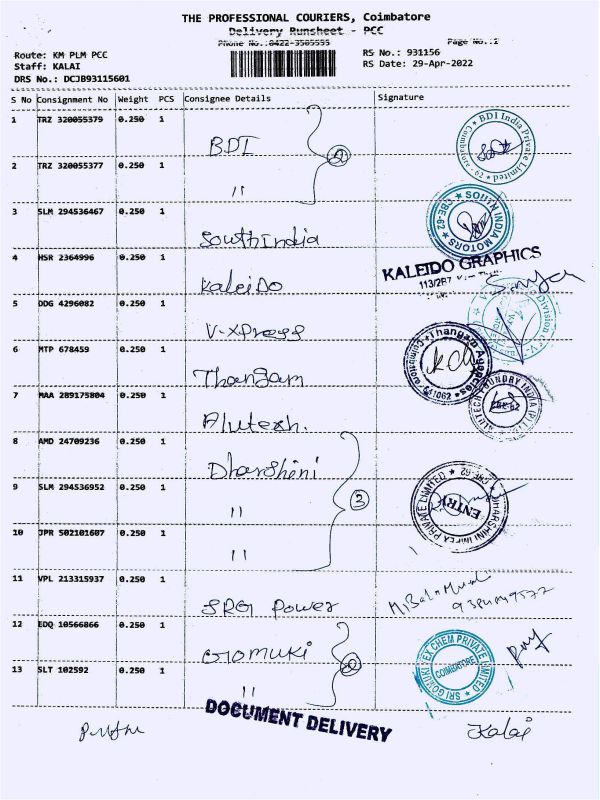 THE PROFESSIONAL COURIERS, Coimbatore
Delivery Runsheet - PCC
Phone No.:0422-3505555
Page No.:1
Route: KM PLM PCC
Staff: KALAI
DRS No.: DCJB93115601
RS No.: 931156
RS Date: 29-Apr-2022
S No Consignment No Weight PCS Consignee Details Signature
1 TRZ 320055379 0.250 1 BDI
BDI India Private Limited
2 TRZ 320055377 0.250 1 "
3 SLM 294536467 0.250 1 South India
SOUTH INDIA MOTORS CBE-62
4 HSR 2364996 0.250 1 Kaleido
KALEIDO GRAPHICS
5 DDG 4296082 0.250 1 V-Xpress
6 MTP 678459 0.250 1 Thangam
Thangam Agencies Coimbatore 641062
7 MAA 289175804 0.250 1 Alutech.
ALUTECH FOUNDRY INDIA (P) LTD CBE-62
8 AMD 24709236 0.250 1 Dharshini
9 SLM 294536952 0.250 1 "
3
DHARSHINI IMPEX PRIVATE LIMITED
ENTRY
10 JPR 502101607 0.250 1 "
11 VPL 213315937 0.250 1 SRG Power
12 EDQ 10566866 0.250 1 Gomuki
SRI GOMUKI EX CHEM PRIVATE LIMITED
COIMBATORE
13 SLT 102592 0.250 1 "
DOCUMENT DELIVERY
Kalai